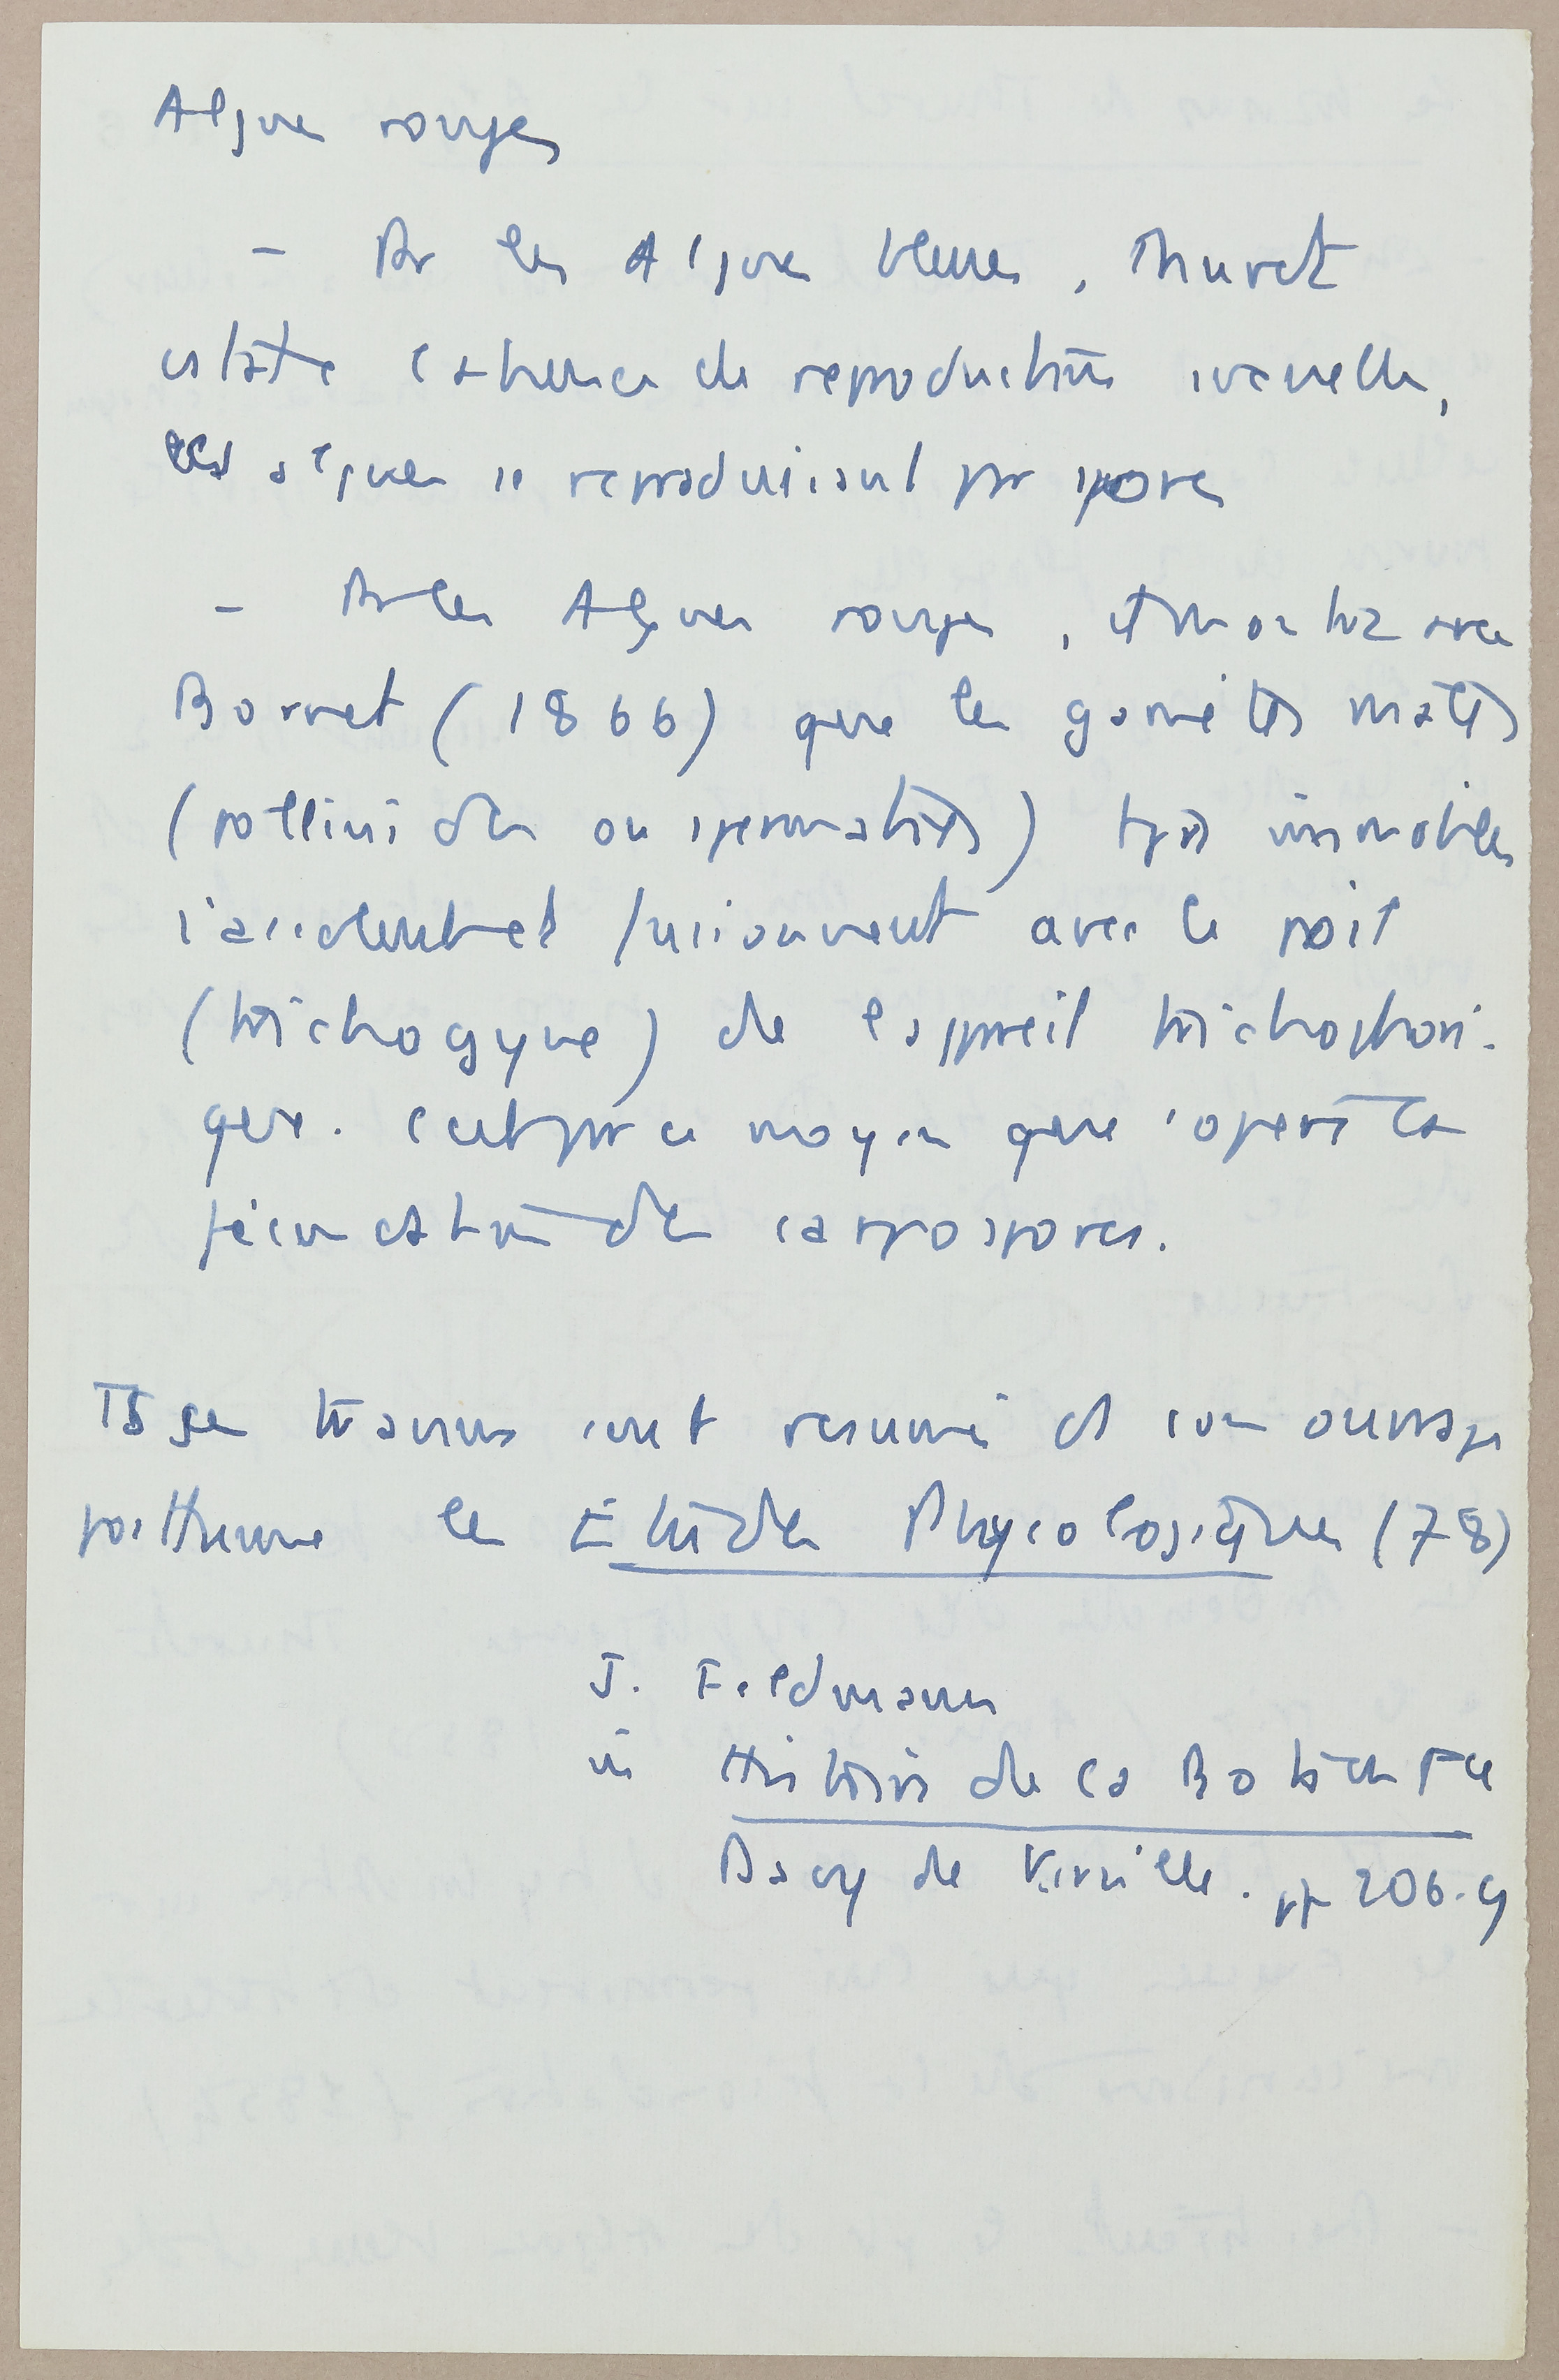 Algues rouges
- Pr les Algues bleues, Thuret
constate l'absence de reproduction sexuelle,
les algues se reproduisant par spores
- Pr les Algues rouges, il montra avec
Bornet (1866) que les gamètes mâles
(pollinides ou spermaties) tjrs immobiles
s'accolent et fusionnent avec le poil
(trichogyne) de l'appareil trichophori-
que. C'est par ce moyen que s'opère la
fécondation des carpospores.
Ts ses travaux sont résumés ds son ouvrage
posthume les Études Phycologiques (78)
J. Feldmann
in Histoire de la Bot en Fce
Davy de Virville. pp 206-9